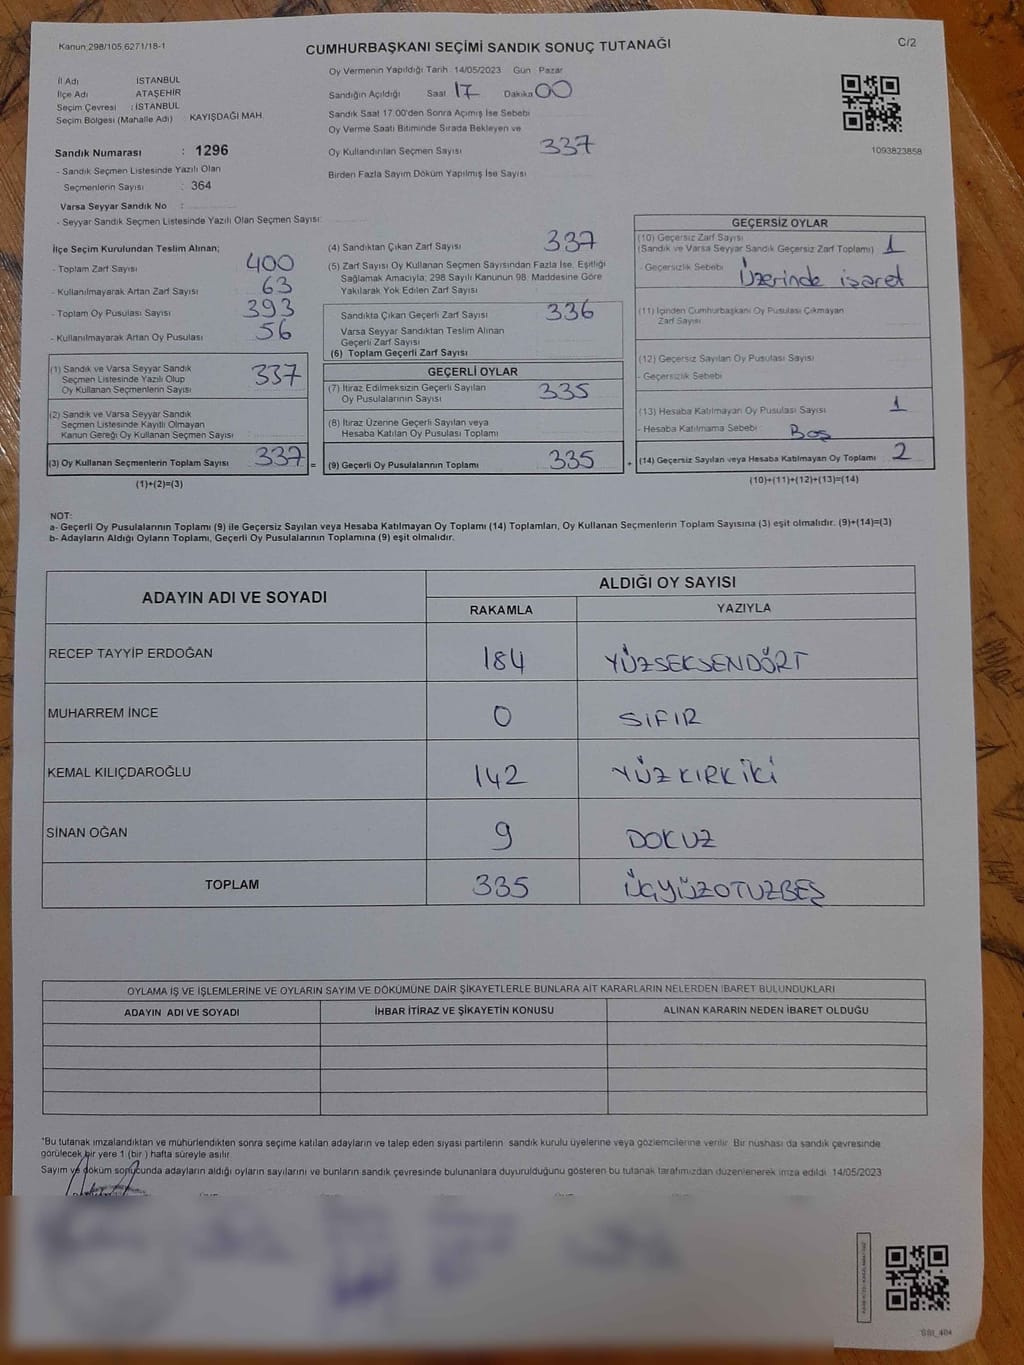 Kanun;298/105,6271/18-1
CUMHURBAŞKANI SEÇİMİ SANDIK SONUÇ TUTANAĞI
C/2
İl Adı İSTANBUL
İlçe Adı ATAŞEHİR
Seçim Çevresi : İSTANBUL
Seçim Bölgesi (Mahalle Adı) : KAYIŞDAĞI MAH.
Sandık Numarası : 1296
- Sandık Seçmen Listesinde Yazılı Olan
Seçmenlerin Sayısı : 364
Varsa Seyyar Sandık No :
- Seyyar Sandık Seçmen Listesinde Yazılı Olan Seçmen Sayısı:
Oy Vermenin Yapıldığı Tarih 14/05/2023 Gün Pazar
Sandığın Açıldığı Saat 17 Dakika 00
Sandık Saat 17.00'den Sonra Açımış İse Sebebi
Oy Verme Saati Bitiminde Sırada Bekleyen ve
Oy Kullandırılan Seçmen Sayısı 337
Birden Fazla Sayım Döküm Yapılmış İse Sayısı
1093823858
İlçe Seçim Kurulundan Teslim Alınan;
- Toplam Zarf Sayısı 400
- Kullanılmayarak Artan Zarf Sayısı 63
- Toplam Oy Pusulası Sayısı 393
- Kullanılmayarak Artan Oy Pusulası 56
(1) Sandık ve Varsa Seyyar Sandık
Seçmen Listesinde Yazılı Olup
Oy Kullanan Seçmenlerin Sayısı 337
(2) Sandık ve Varsa Seyyar Sandık
Seçmen Listesinde Kayıtlı Olmayan
Kanun Gereği Oy Kullanan Seçmen Sayısı
(3) Oy Kullanan Seçmenlerin Toplam Sayısı 337 =
(1)+(2)=(3)
(4) Sandıktan Çıkan Zarf Sayısı 337
(5) Zarf Sayısı Oy Kullanan Seçmen Sayısından Fazla İse, Eşitliği
Sağlamak Amacıyla; 298 Sayılı Kanunun 98. Maddesine Göre
Yakılarak Yok Edilen Zarf Sayısı
Sandıkta Çıkan Geçerli Zarf Sayısı 336
Varsa Seyyar Sandıktan Teslim Alınan
Geçerli Zarf Sayısı
(6) Toplam Geçerli Zarf Sayısı
GEÇERLİ OYLAR
(7) İtiraz Edilmeksizin Geçerli Sayılan
Oy Pusulalarının Sayısı 335
(8) İtiraz Üzerine Geçerli Sayılan veya
Hesaba Katılan Oy Pusulası Toplamı
(9) Geçerli Oy Pusulalarının Toplamı 335 +
GEÇERSİZ OYLAR
(10) Geçersiz Zarf Sayısı
(Sandık ve Varsa Seyyar Sandık Geçersiz Zarf Toplamı) 1
- Geçersizlik Sebebi Üzerinde işaret
(11) İçinden Cumhurbaşkanı Oy Pusulası Çıkmayan
Zarf Sayısı
(12) Geçersiz Sayılan Oy Pusulası Sayısı
- Geçersizlik Sebebi
(13) Hesaba Katılmayan Oy Pusulası Sayısı 1
- Hesaba Katılmama Sebebi Boş
(14) Geçersiz Sayılan veya Hesaba Katılmayan Oy Toplamı 2
(10)+(11)+(12)+(13)=(14)
NOT:
a- Geçerli Oy Pusulalarının Toplamı (9) ile Geçersiz Sayılan veya Hesaba Katılmayan Oy Toplamı (14) Toplamları, Oy Kullanan Seçmenlerin Toplam Sayısına (3) eşit olmalıdır. (9)+(14)=(3)
b- Adayların Aldığı Oyların Toplamı, Geçerli Oy Pusulalarının Toplamına (9) eşit olmalıdır.
ADAYIN ADI VE SOYADI
ALDIĞI OY SAYISI
RAKAMLA YAZIYLA
RECEP TAYYİP ERDOĞAN 184 YÜZSEKSENDÖRT
MUHARREM İNCE 0 SIFIR
KEMAL KILIÇDAROĞLU 142 YÜZKIRKİKİ
SİNAN OĞAN 9 DOKUZ
TOPLAM 335 ÜÇYÜZOTUZBEŞ
OYLAMA İŞ VE İŞLEMLERİNE VE OYLARIN SAYIM VE DÖKÜMÜNE DAİR ŞİKAYETLERLE BUNLARA AİT KARARLARIN NELERDEN İBARET BULUNDUKLARI
ADAYIN ADI VE SOYADI İHBAR İTİRAZ VE ŞİKAYETİN KONUSU ALINAN KARARIN NEDEN İBARET OLDUĞU
*Bu tutanak imzalandıktan ve mühürlendikten sonra seçime katılan adayların ve talep eden siyasi partilerin sandık kurulu üyelerine veya gözlemcilerine verilir. Bir nüshası da sandık çevresinde
görülecek bir yere 1 (bir) hafta süreyle asılır.
Sayım ve döküm sonucunda adayların aldığı oyların sayılarını ve bunların sandık çevresinde bulunanlara duyurulduğunu gösteren bu tutanak tarafımızdan düzenlenerek imza edildi. 14/05/2023